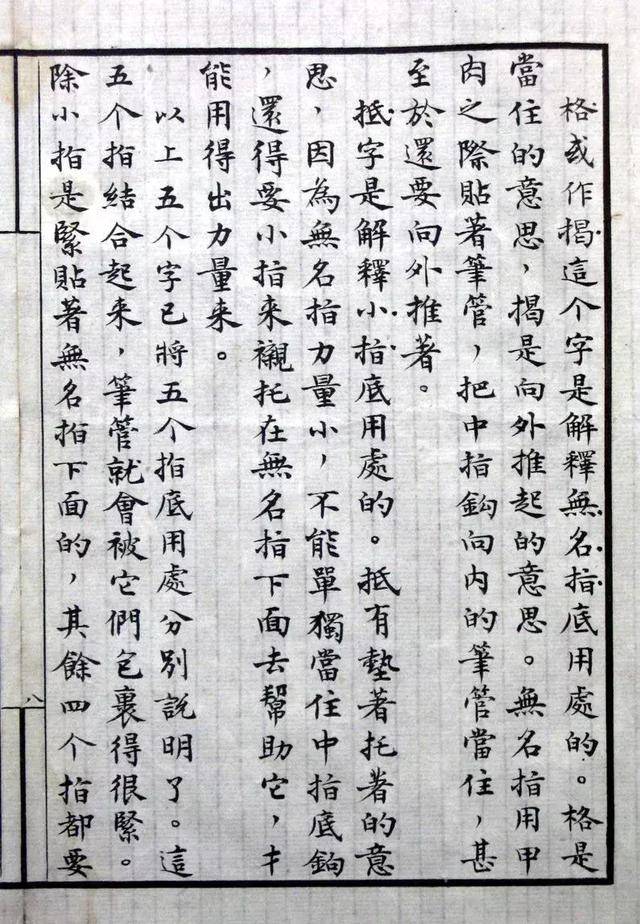 格或作揭這个字是解釋無名指底用處的。格是
當住的意思，揭是向外推起的意思。無名指用甲
肉之際貼著筆管，把中指鈎向內的筆管當住，甚
至於還要向外推著。
抵字是解釋小指底用處的。抵有墊著托著的意
思，因為無名指力量小，不能單獨當住中指底鈎
，還得要小指来襯托在無名指下面去幫助它，才
能用得出力量来。
以上五个字已將五个指底用處分別說明了。這
五个指結合起来，筆管就會被它們包裹得很緊。
除小指是緊貼著無名指下面的，其餘四个指都要
八